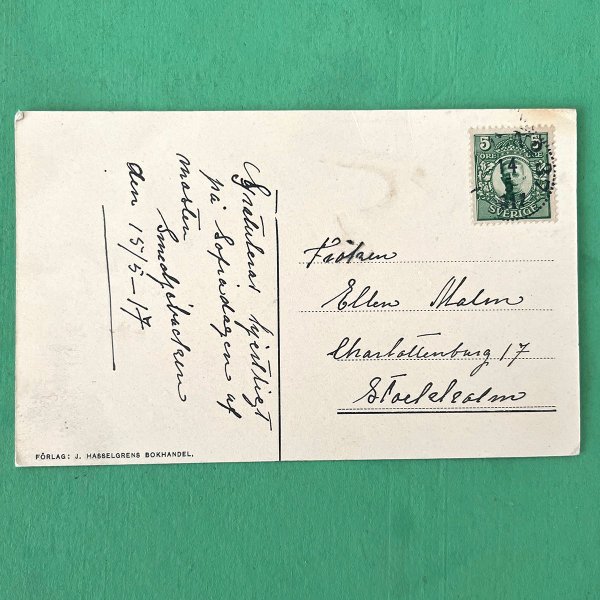 Gratuleras hjertligt
på Sofiadagen af
moster
Smedjebacken
den 15/5-17
FÖRLAG: J. HASSELGRENS BOKHANDEL.
5 5
ÖRE
SVERIGE
14
Fröken
Ellen Malm
Charlottenburg 17
Stockholm